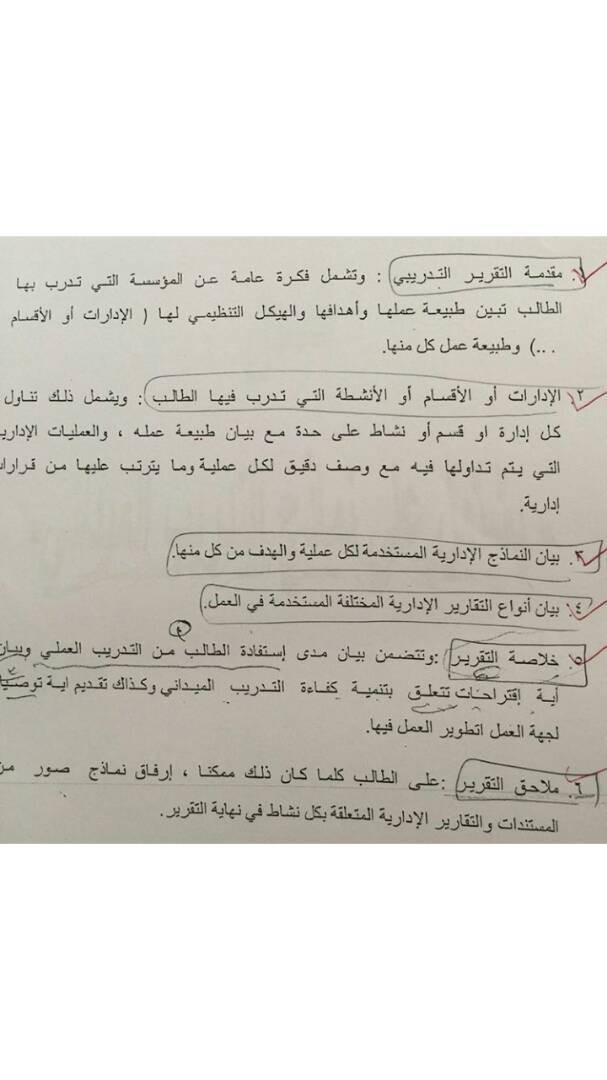 ١. مقدمة التقرير التدريبي : وتشمل فكرة عامة عن المؤسسة التي تدرب بها
الطالب تبين طبيعة عملها وأهدافها والهيكل التنظيمي لها ( الإدارات أو الأقسام
...) وطبيعة عمل كل منها.
٢. الإدارات أو الأقسام أو الأنشطة التي تدرب فيها الطالب : ويشمل ذلك تناول
كل إدارة او قسم أو نشاط على حدة مع بيان طبيعة عمله ، والعمليات الإدارية
التي يتم تداولها فيه مع وصف دقيق لكل عملية وما يترتب عليها من قرارات
إدارية.
٣. بيان النماذج الإدارية المستخدمة لكل عملية والهدف من كل منها.
٤. بيان أنواع التقارير الإدارية المختلفة المستخدمة في العمل.
٥. خلاصة التقرير :وتتضمن بيان مدى إستفادة الطالب من التدريب العملي وبيان
أية إقتراحات تتعلق بتنمية كفاءة التدريب الميداني وكذاك تقديم اية
لجهة العمل اتطوير العمل فيها.
٦. ملاحق التقرير :على الطالب كلما كان ذلك ممكنا ، إرفاق نماذج صور من
المستندات والتقارير الإدارية المتعلقة بكل نشاط في نهاية التقرير.